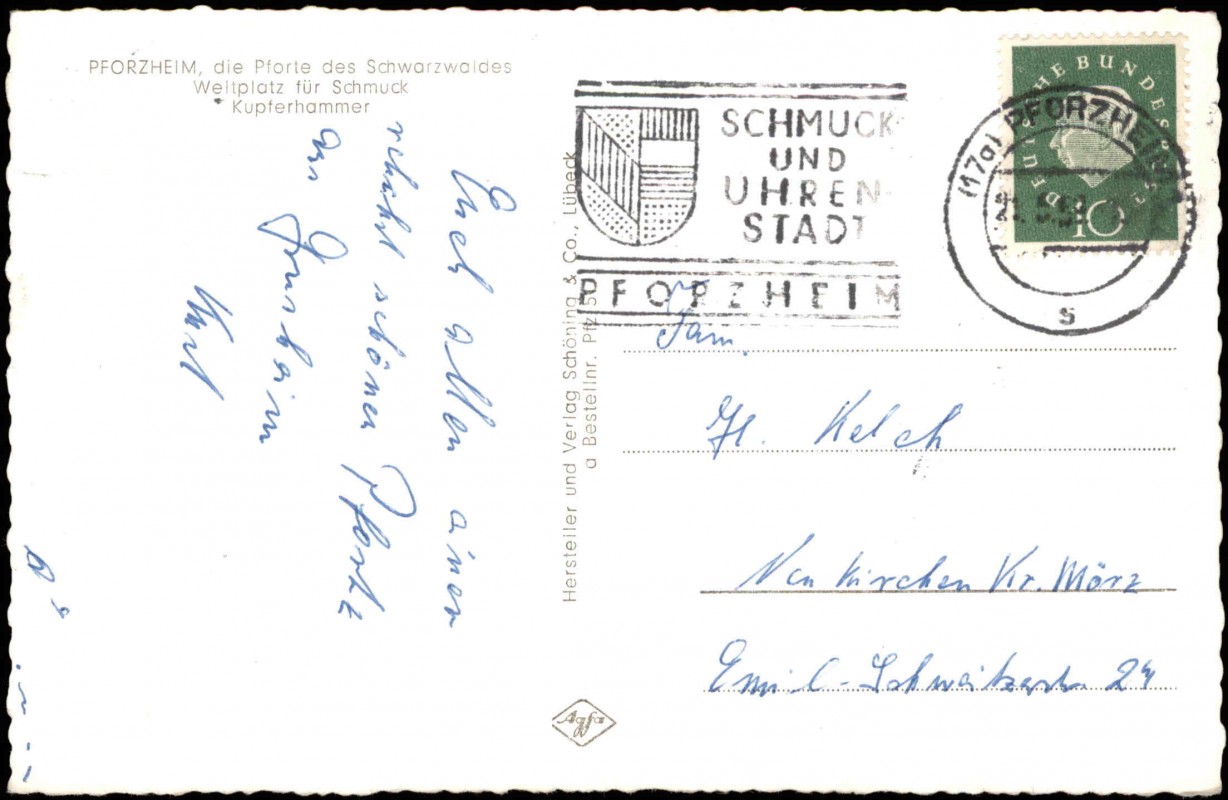 PFORZHEIM, die Pforte des Schwarzwaldes
Weltplatz für Schmuck
Kupferhammer
Euch allen einen
recht schönen
Kurt
Hersteller und Verlag Schöning & Co., Lübeck
a Bestellnr. Pfz
SCHMUCK
UND
UHREN
STADT
PFORZHEIM
DEUTSCHE BUNDESPOST
10
(17a) PFORZHEIM
s
Fam.
H. Kelch
Neukirchen Kr. Mörz
Emil-Schweitzerstr 24
Agfa